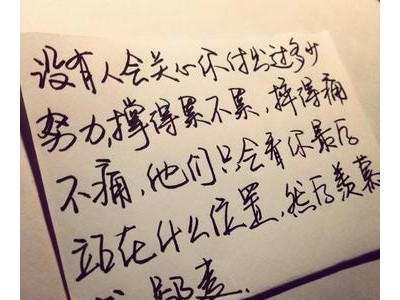 没有人会关心你付出过多少
努力,撑得累不累,摔得痛
不痛,他们只会看你最后
站在什么位置,然后羡慕
鄙夷.